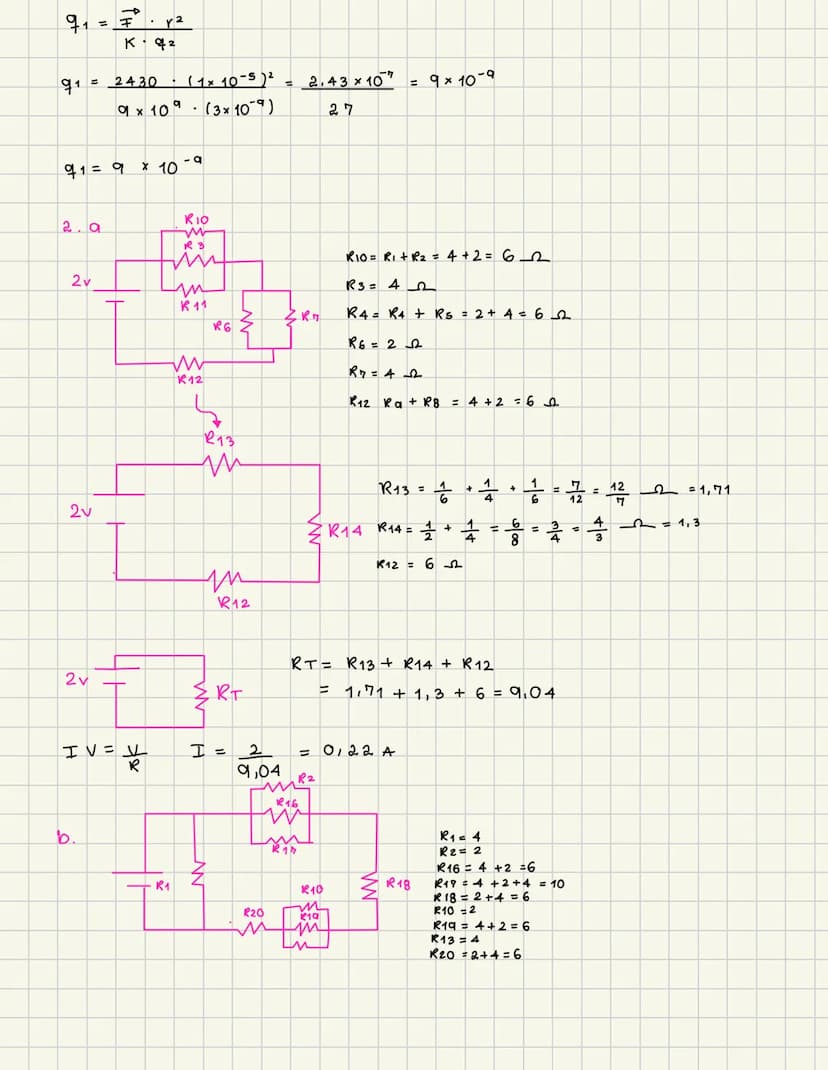 q1 = F · r²
K · q2
q1 = 2430 · (1x 10⁻⁵)² = 2.43 x 10⁻⁷ = 9 x 10⁻⁹
9 x 10⁹ · (3x10⁻⁹) 27
q1 = 9 x 10⁻⁹
2.a
R10
R3
2v
R11
R6
R7
R12
R10 = R1 + R2 = 4 + 2 = 6 Ω
R3 = 4 Ω
R4 = R4 + R5 = 2 + 4 = 6 Ω
R6 = 2 Ω
R7 = 4 Ω
R12 R9 + R8 = 4 + 2 = 6 Ω
R13
2v
R14
R12
R13 = 1/6 + 1/4 + 1/6 = 7/12 = 12/7 Ω = 1,71
R14 = 1/2 + 1/4 = 6/8 = 3/4 = 4/3 Ω = 1,3
R12 = 6 Ω
2v
RT
RT = R13 + R14 + R12
= 1,71 + 1,3 + 6 = 9,04
I V = V/R I = 2/9,04 = 0,22 A
b.
R2
R16
R1
R18
R10
R20
R19
R1 = 4
R2 = 2
R16 = 4 + 2 = 6
R17 = 4 + 2 + 4 = 10
R18 = 2 + 4 = 6
R10 = 2
R19 = 4 + 2 = 6
R13 = 4
R20 = 2 + 4 = 6